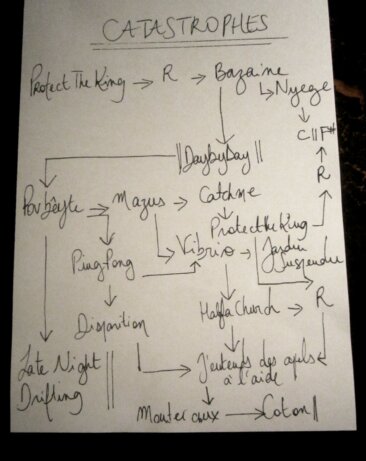 CATASTROPHES
Protect The King → R → Bazaine
↳ Nyege
C11F#
|| Day by Day ||
R
Mazus → Catch me
Protect the King
Ping Pong
Vibrio → Jardin
Suspendu
Disparition
Haffa Church → R
Late Night
Drifting
J'entends des appels
à l'aide
Monter aux → Coton ||